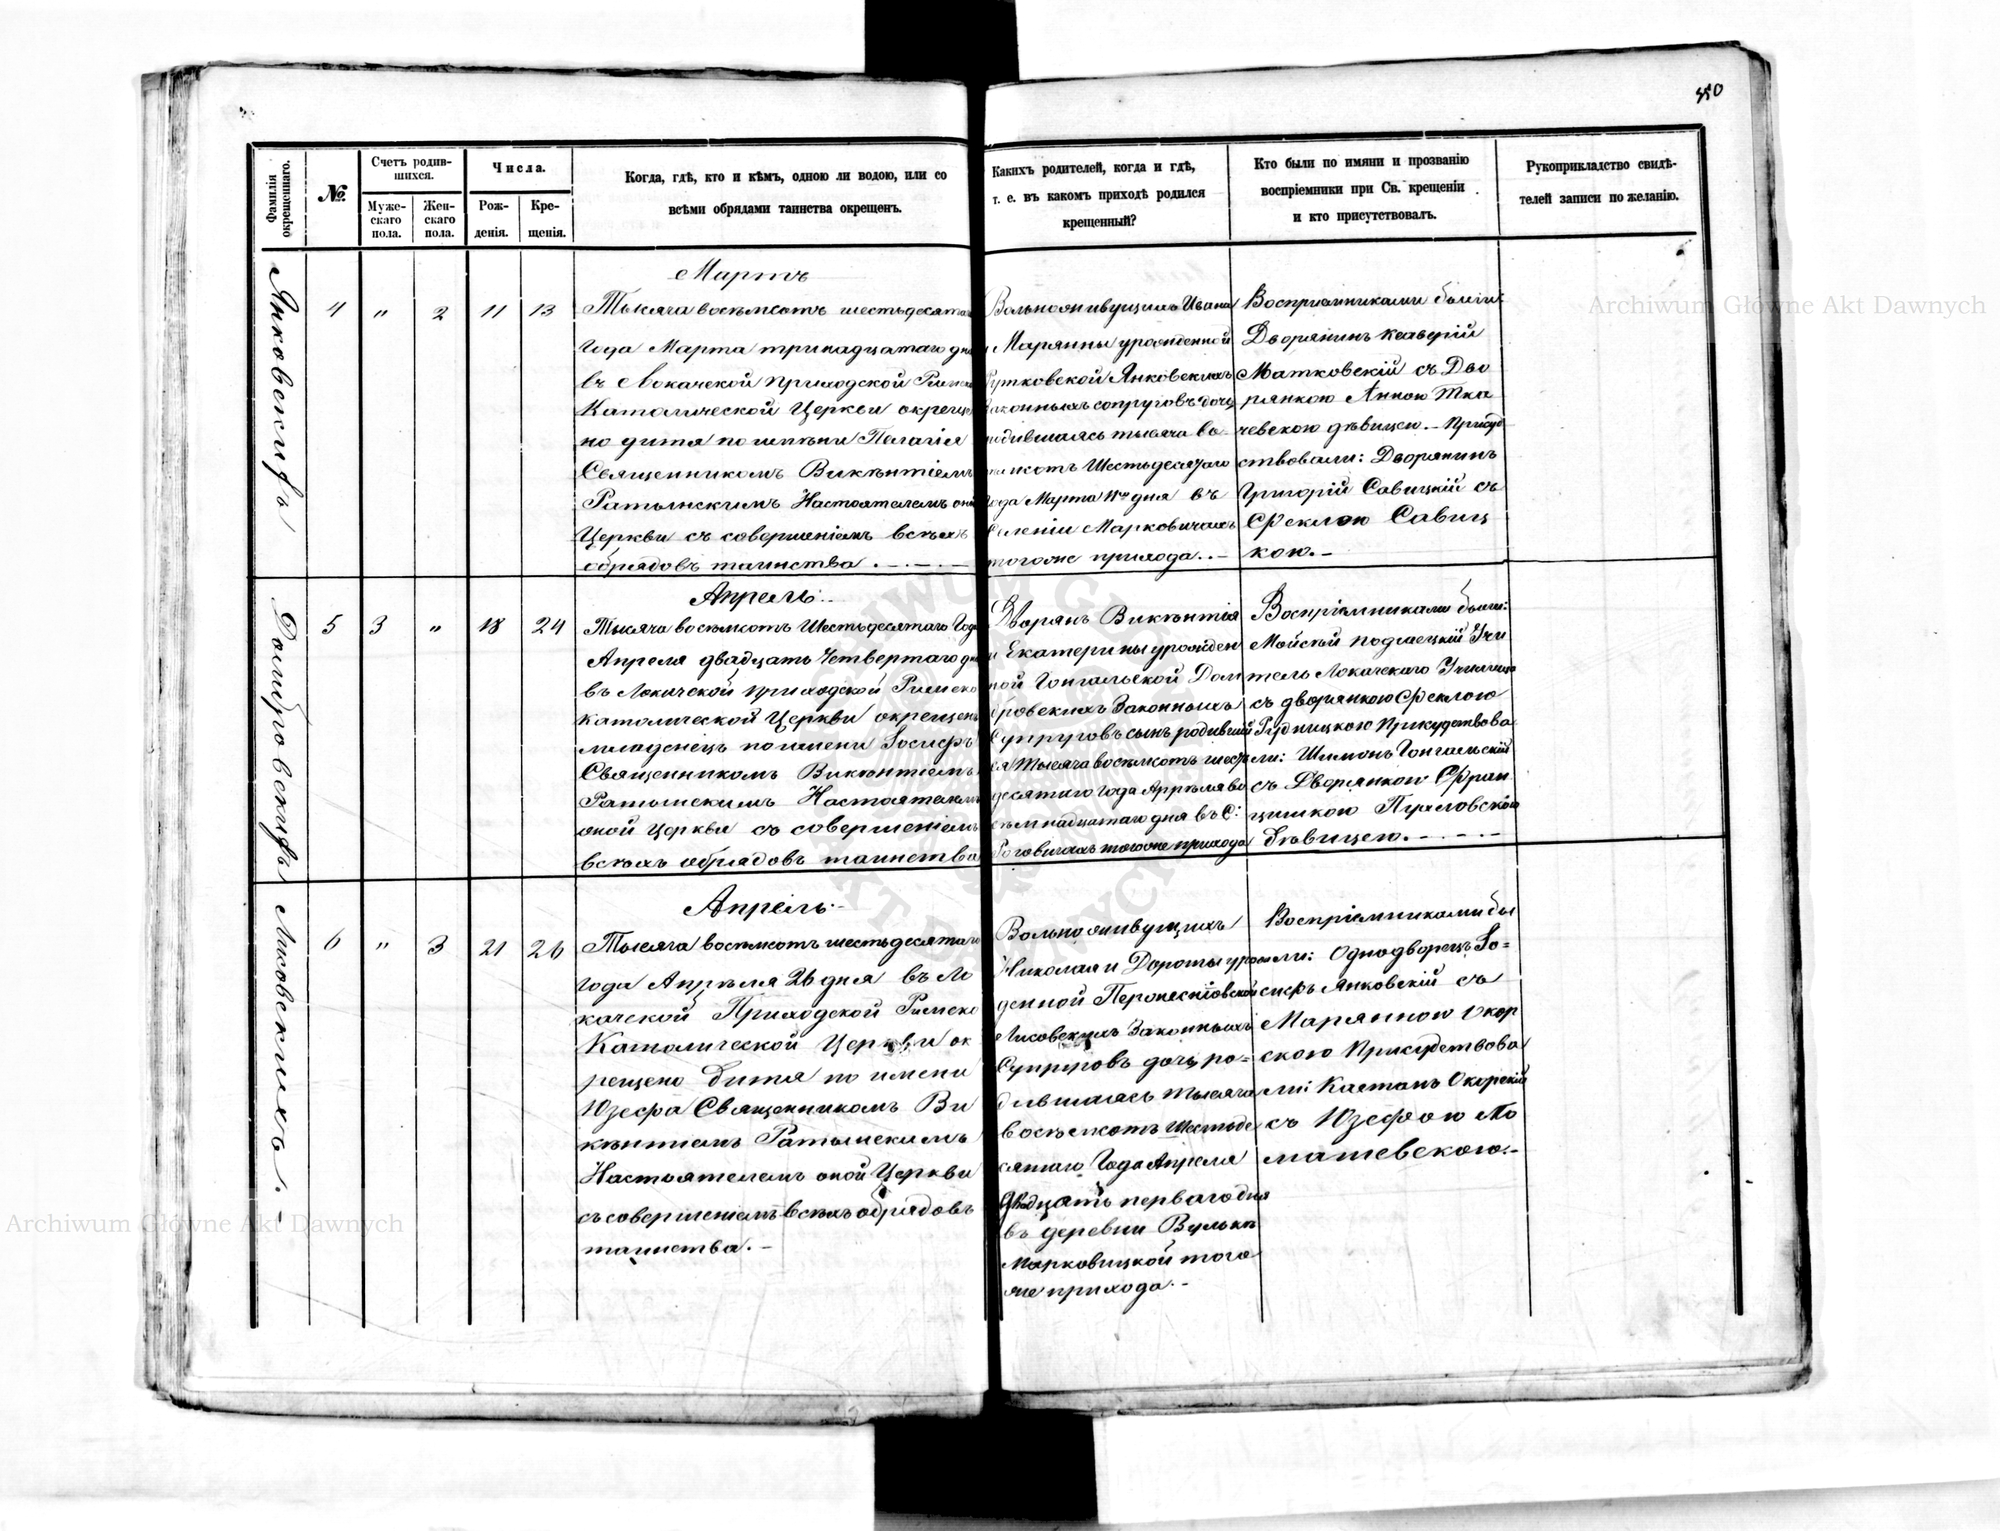 350
Фамилія окрещеннаго.
№.
Счетъ родив-
шихся.
Муже-
скаго
пола.
Жен-
скаго
пола.
Числа.
Рож-
денія.
Кре-
щенія.
Когда, гдѣ, кто и кѣмъ, одною ли водою, или со
всѣми обрядами таинства окрещенъ.
Какихъ родителей, когда и гдѣ,
т. е. въ какомъ приходѣ родился
крещенный?
Кто были по имяни и прозванію
воспріемники при Св. крещеніи
и кто присутствовалъ.
Рукоприкладство свидѣ-
телей записи по желанію.
Янковскихъ
4 " 2 11 13
Мартъ
Тысяча восемсотъ шестьдесятаго
года Марта тринадцатаго дня
въ Локачской приходской Римско
Католической Церкви окреще
но дитя по имени Пелагія
Священникомъ Викентіемъ
Ратынскимъ Настоятелемъ оной
Церкви съ совершеніемъ всѣхъ
обрядовъ таинства.
Вольноживущихъ Ивана
и Марянны урожденной
Рутковской Янковскихъ
Законныхъ супруговъ дочь
родившаясь тысяча во
семсотъ Шестьдесятаго
года Марта 11го дня въ
Селеніи Марковичахъ
тогоже прихода.
Воспріемниками были:
Дворянинъ Ксаверій
Матковскій съ Дво
рянкою Анною Тка
чевскою дѣвицею. – Присуд
ствовали: Дворянинъ
Григорій Савицкій съ
Феклою Савиц
кою.–
Домбровскихъ
5 3 " 18 24
Апрель.
Тысяча восемсотъ Шестьдесятаго Года
Апреля двадцать Четвертаго дня
въ Локачской приходской Римско
католической Церкви окрещенъ
младенецъ по имени Іосифъ
Священникомъ Викентіемъ
Ратынскимъ Настоятелемъ
оной Церкви съ совершеніемъ
всѣхъ обрядовъ таинства
Дворянъ Викентія
и Екатерины урожден
ной Гонгальской Дом
бровскихъ Законныхъ
Супруговъ сынъ родивший
ся Тысяча восемсотъ шест
десятаго года Апреля во
семнадцатаго дня въ С:
Роговичахъ тогоже прихода
Воспріемниками были:
Мойсей Подгаецкій Учи
тель Локачскаго Училища
съ дворянкою Феклою
Рудницкою Присудствова
ли: Шимонъ Гонгальскій
съ Дворянкою Фран
цишкою
Дѣвицею.
Лисовскихъ.–
6 " 3 21 26
Апрель.
Тысяча восемсотъ шестьдесятаго
года Апреля 26 дня въ Ло
качской Приходской Римско
Католической Церкви ок
рещено Дитя по имени
Юзефа Священникомъ Ви
кентіемъ Ратынскимъ
Настоятелемъ оной Церкви
съ совершеніемъ всѣхъ обрядовъ
таинства.–
Вольноживущихъ
Николая и Дороты урож
денной
Лисовскихъ Законныхъ
Супруговъ дочь ро=
дившаясь тысяча
восемсотъ Шестьде
сятаго Года Апреля
Двадцать перваго дня
въ деревни Вулькѣ
Марковицкой того
же прихода.–
Воспріемниками бы
ли: Однодворецъ Іо=
сифъ Янковскій съ
Марянною Окор
скою Присудствова
ли: Каетанъ Окорскій
съ Юзефою То
машевскою.–
Archiwum Główne Akt Dawnych
Archiwum Główne Akt Dawnych